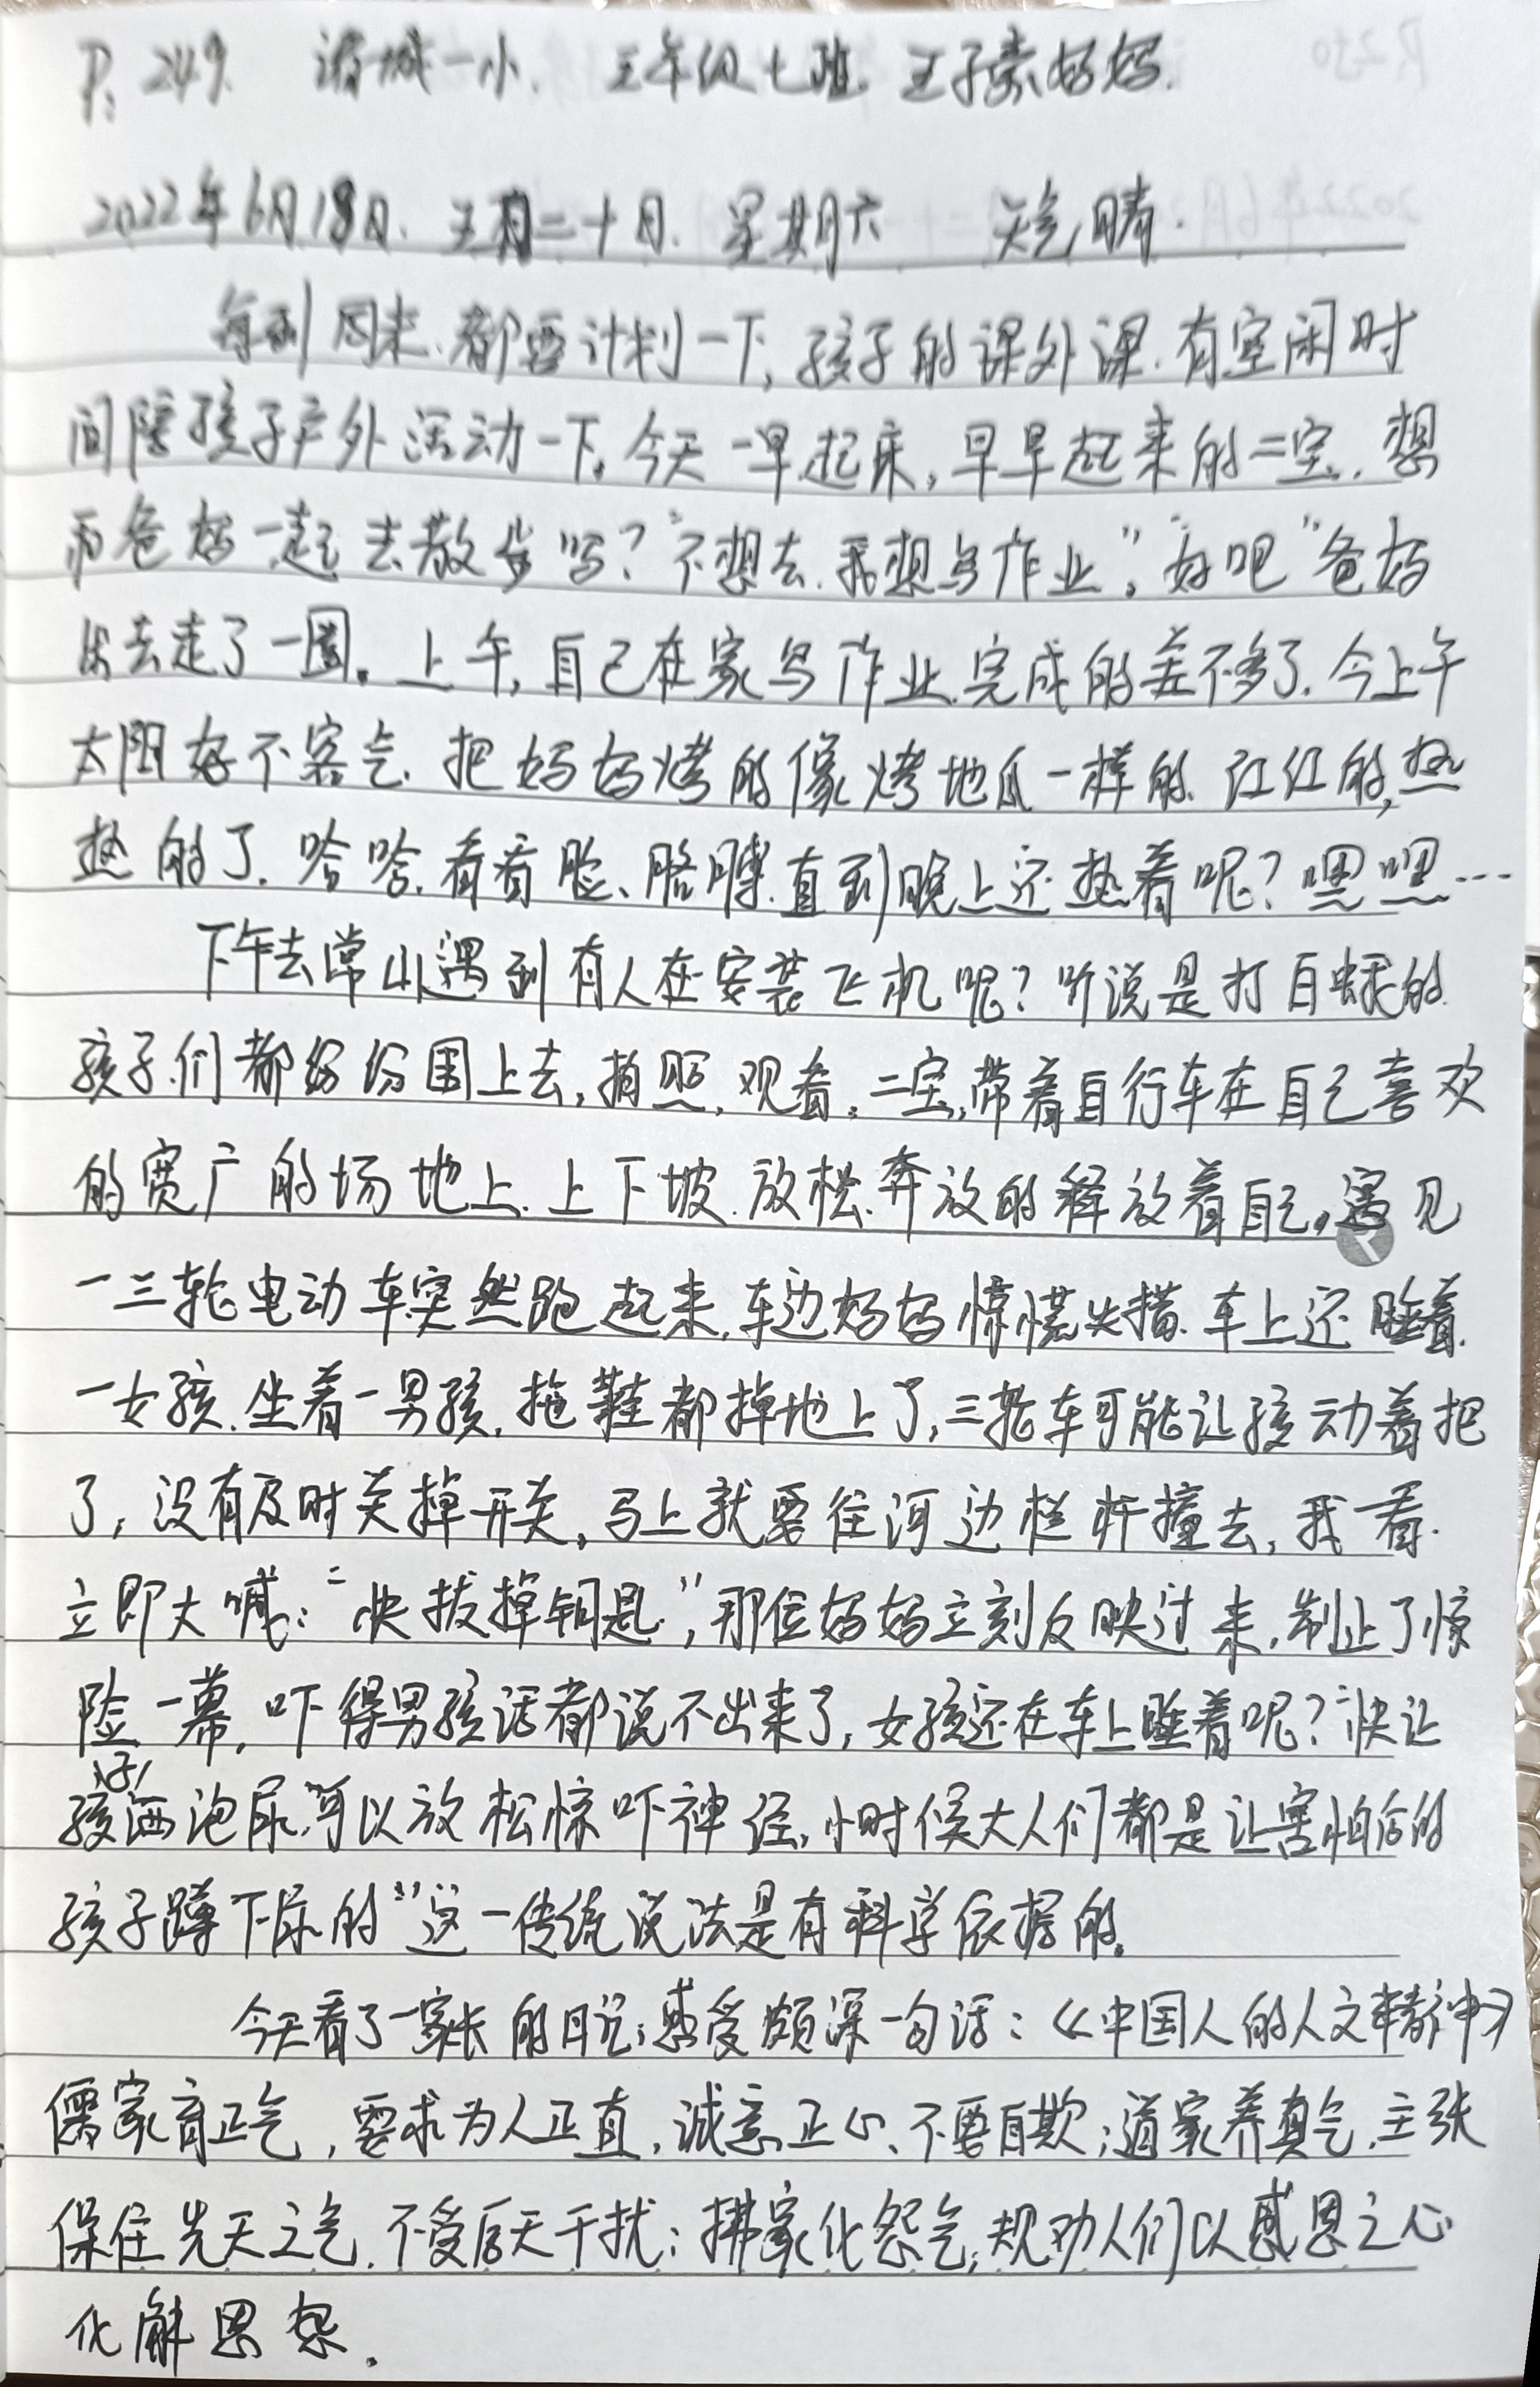 P: 249. 诸城一小. 三年级七班 王子豪妈妈.
2022年6月18日. 五月二十日. 星期六 天气晴.
每到周末、都要计划一下, 孩子的课外课. 有空闲时
间陪孩子户外活动一下。今天一早起床, 早早起来的二宝. 想
和爸妈一起去散步吗? “不想去. 我想写作业”。“好吧”爸妈
出去走了一圈。上午, 自己在家写作业. 完成的差不多了. 今上午
太阳好不客气. 把妈妈烤的像烤地瓜一样的. 红红的, 热
热的了. 哈哈. 看看脸、胳膊. 直到晚上还热着呢? 嘿嘿…
下午去常山遇到有人在安装飞机呢? 听说是打白蛾的.
孩子们都纷纷围上去, 拍照, 观看。二宝, 带着自行车在自己喜欢
的宽广的场地上. 上下坡. 放松. 奔放的释放着自己。遇见
一三轮电动车突然跑起来, 车边妈妈惊慌失措. 车上还睡着
一女孩. 坐着一男孩. 拖鞋都掉地上了, 三轮车可能让孩动着把
了, 没有及时关掉开关, 马上就要往河边栏杆撞去, 我一看.
立即大喊: “快拔掉钥匙”, 那位妈妈立刻反映过来, 制止了惊
险一幕, 吓得男孩话都说不出来了, 女孩还在车上睡着呢? “快让
孩子洒泡尿, 可以放松惊吓神经, 小时候大人们都是让害怕后的
孩子蹲下尿的”这一传统说法是有科学依据的。
今天看了一家长的日记; 感受颇深一句话: 《中国人的人文精神》
儒家育正气, 要求为人正直, 诚意正心、不要自欺; 道家养真气. 主张
保住先天之气. 不受后天干扰; 拂家化怨气, 规劝人们以感恩之心
化解恩怨.